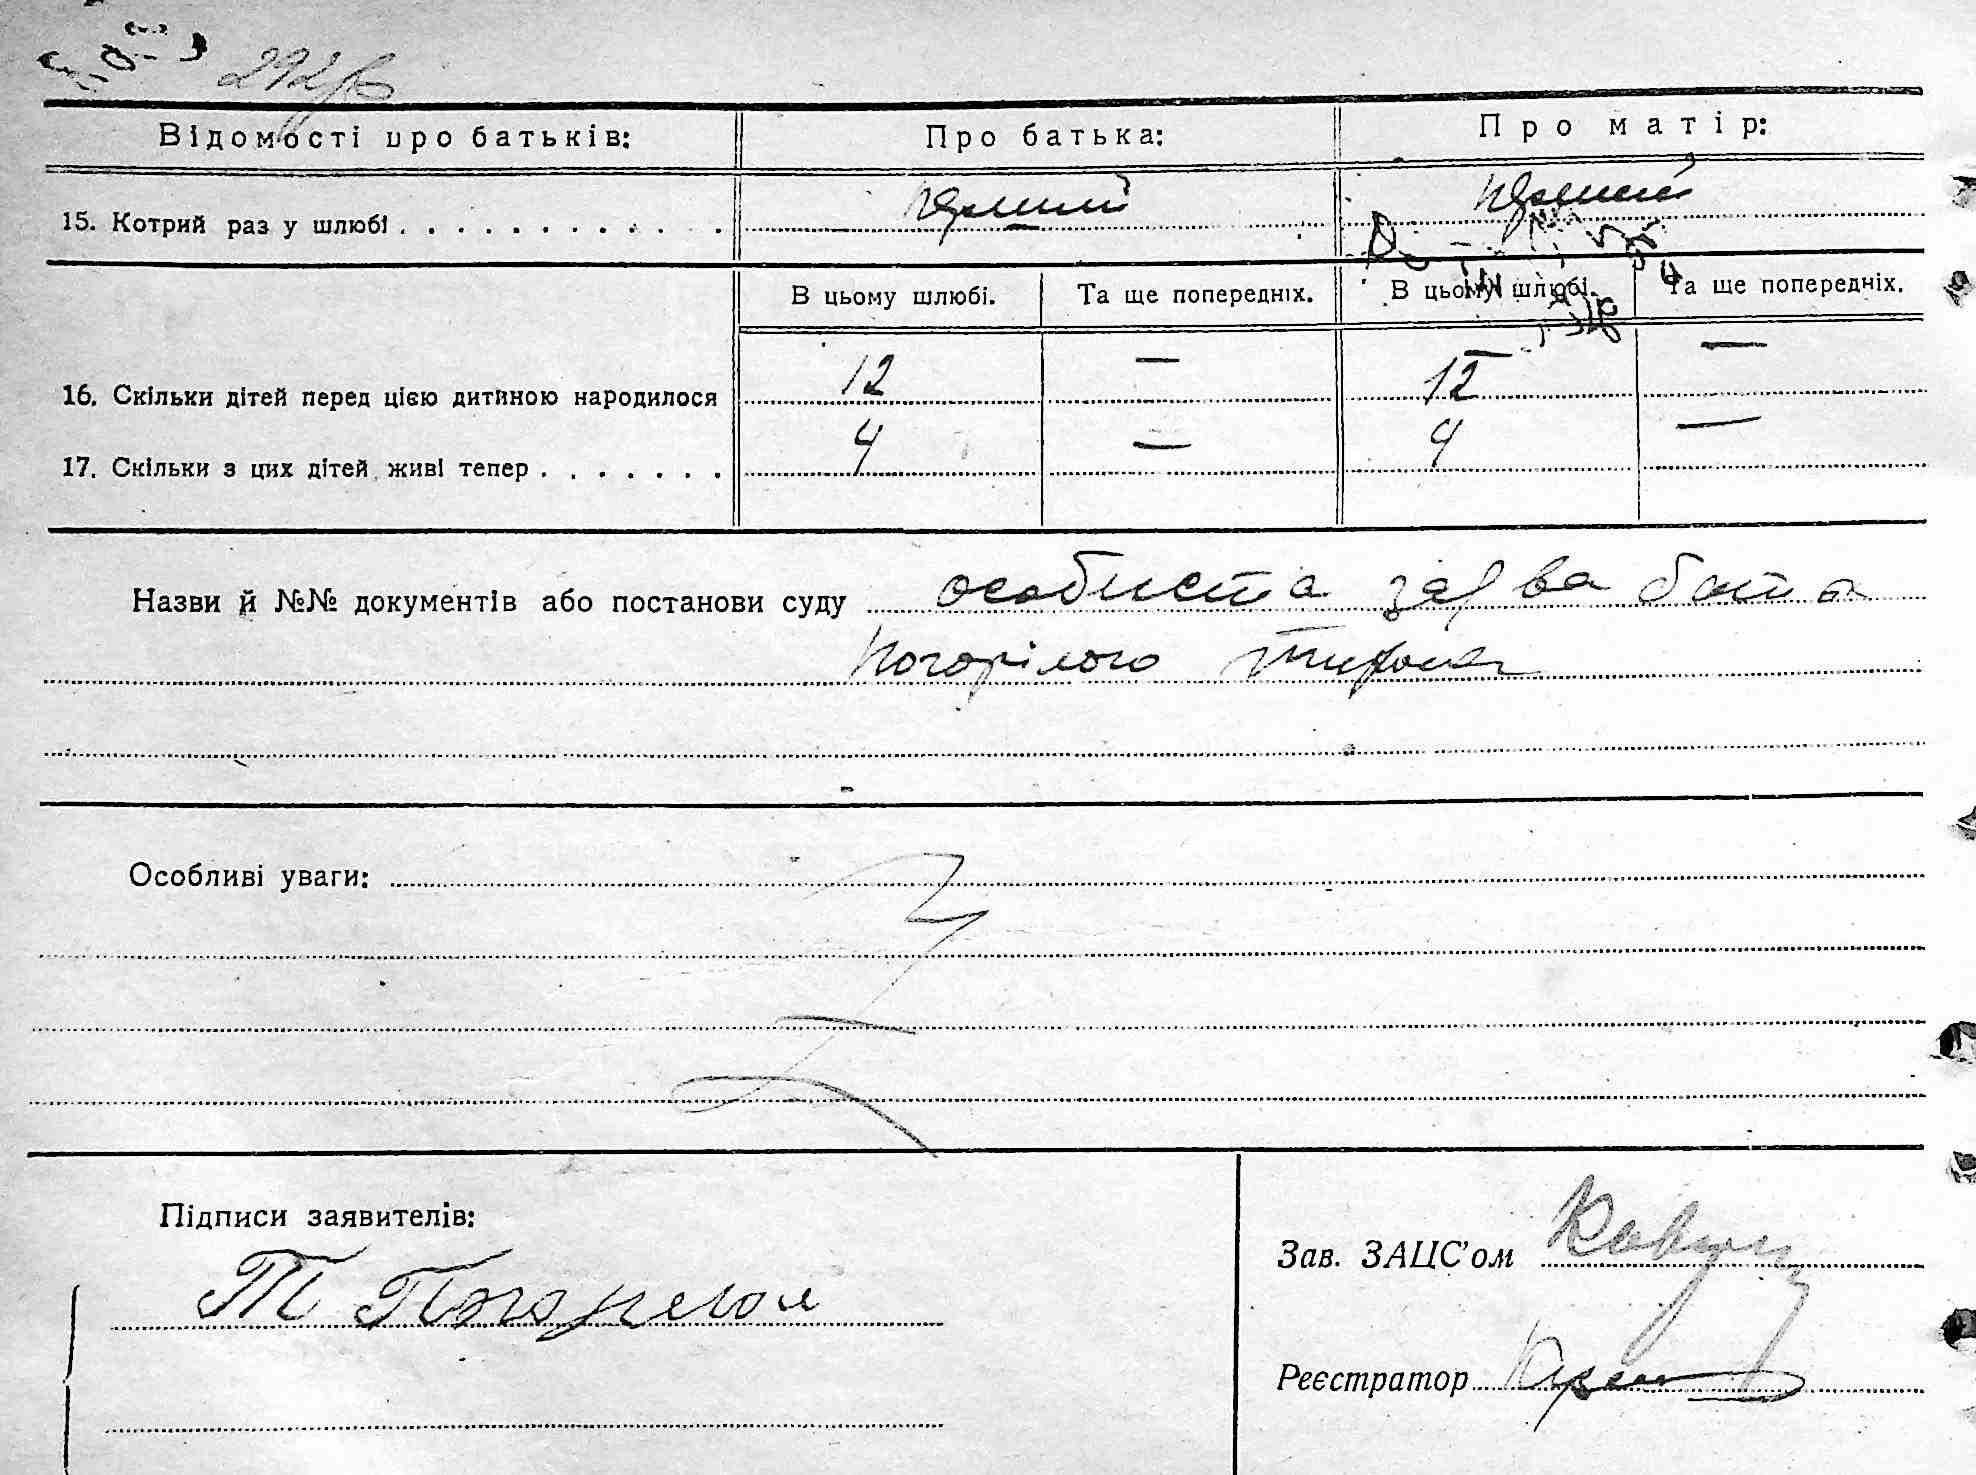 Відомості про батьків: Про батька: Про матір:
15. Котрий раз у шлюбі . . . . . . . . . . . . перший перший
В цьому шлюбі. Та ще попередніх. В цьому шлюбі. Та ще попередніх.
16. Скільки дітей перед цією дитиною народилося 12 — 12 —
17. Скільки з цих дітей живі тепер . . . . . . . 4 — 4 —
Назви й №№ документів або постанови суду особиста заява батька
Погорілого
Особливі уваги:
Підписи заявителів:
Зав. ЗАЦС'ом
Т Погорелов
Реєстратор